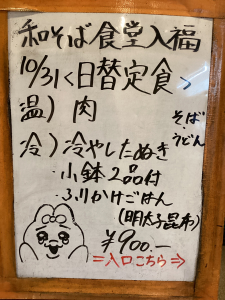 和そば食堂入福
10/31<日替定食>
温) 肉
そば・うどん
冷) 冷やしたぬき
・小鉢2品付
・ふりかけごはん
(明太子昆布)
¥900.-
=入口こちら⇒